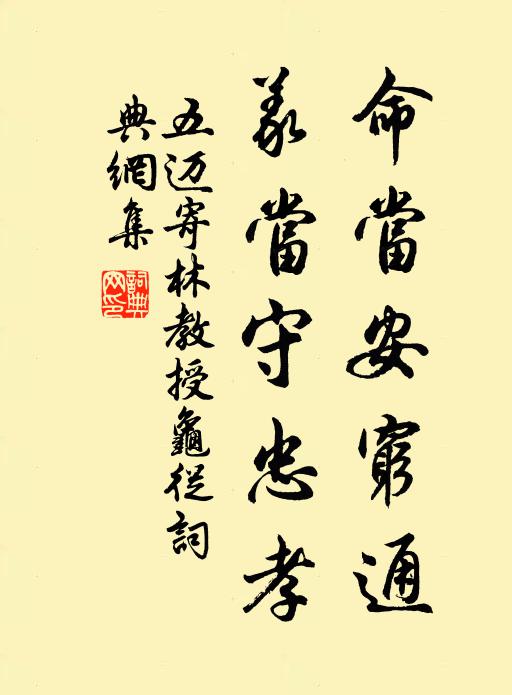 命當安窮通
義當守忠孝
五迈寄林教授龜從詞
典網集
詞典網印